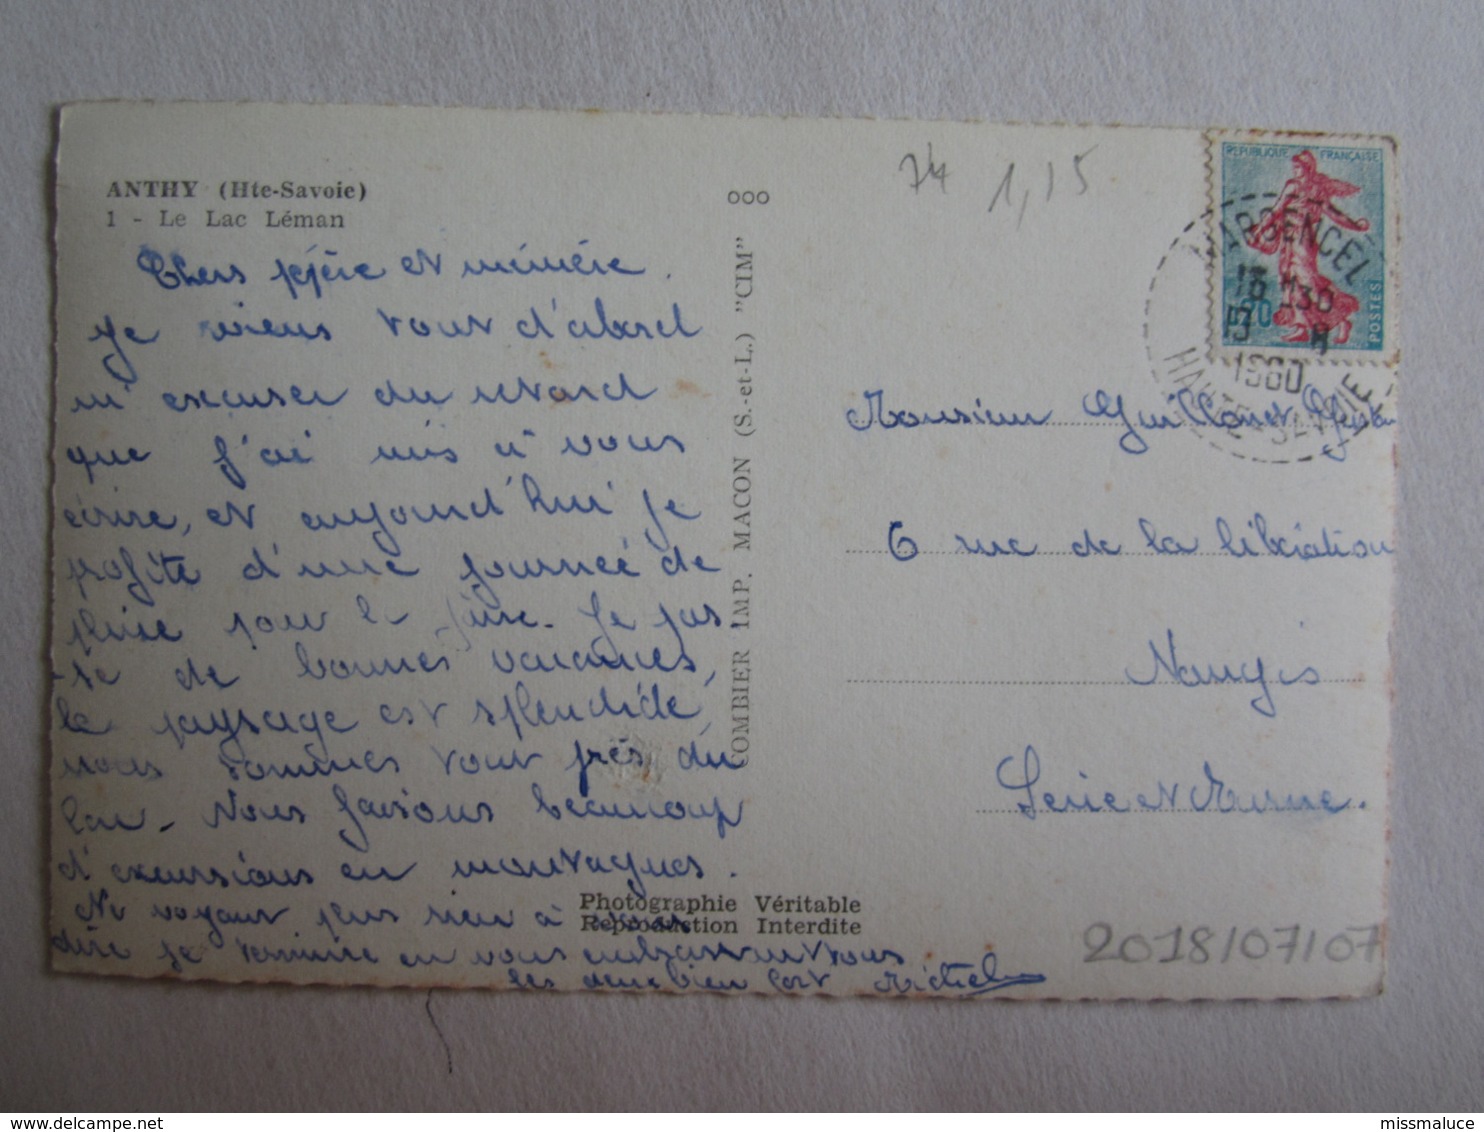 ANTHY (Hte-Savoie)
1 - Le Lac Léman
Chers pépère et mémère.
Je viens tout d'abord
m'excuser du retard
que j'ai mis à vous
écrire, et aujourd'hui je
profite d'une journée de
pluie pour le faire. Je pas
se de bonnes vacances,
le paysage est splendide,
nous sommes tout près du
lac. Nous faisons beaucoup
d'excursions en montagnes.
Ne voyant plus rien à vous
dire je termine en vous embrassant tous
les deux bien fort Michel
ooo
COMBIER IMP. MACON (S.-et-L.) "CIM"
Photographie Véritable
Reproduction Interdite
74 1,15
REPUBLIQUE FRANÇAISE
0,20
POSTES
MARGENCEL
16 H30
1960
HAUTE-SAVOIE
Monsieur Guillonet
6 rue de la libération
Nangis
Seine et Marne.
2018/07/07
missmaluce